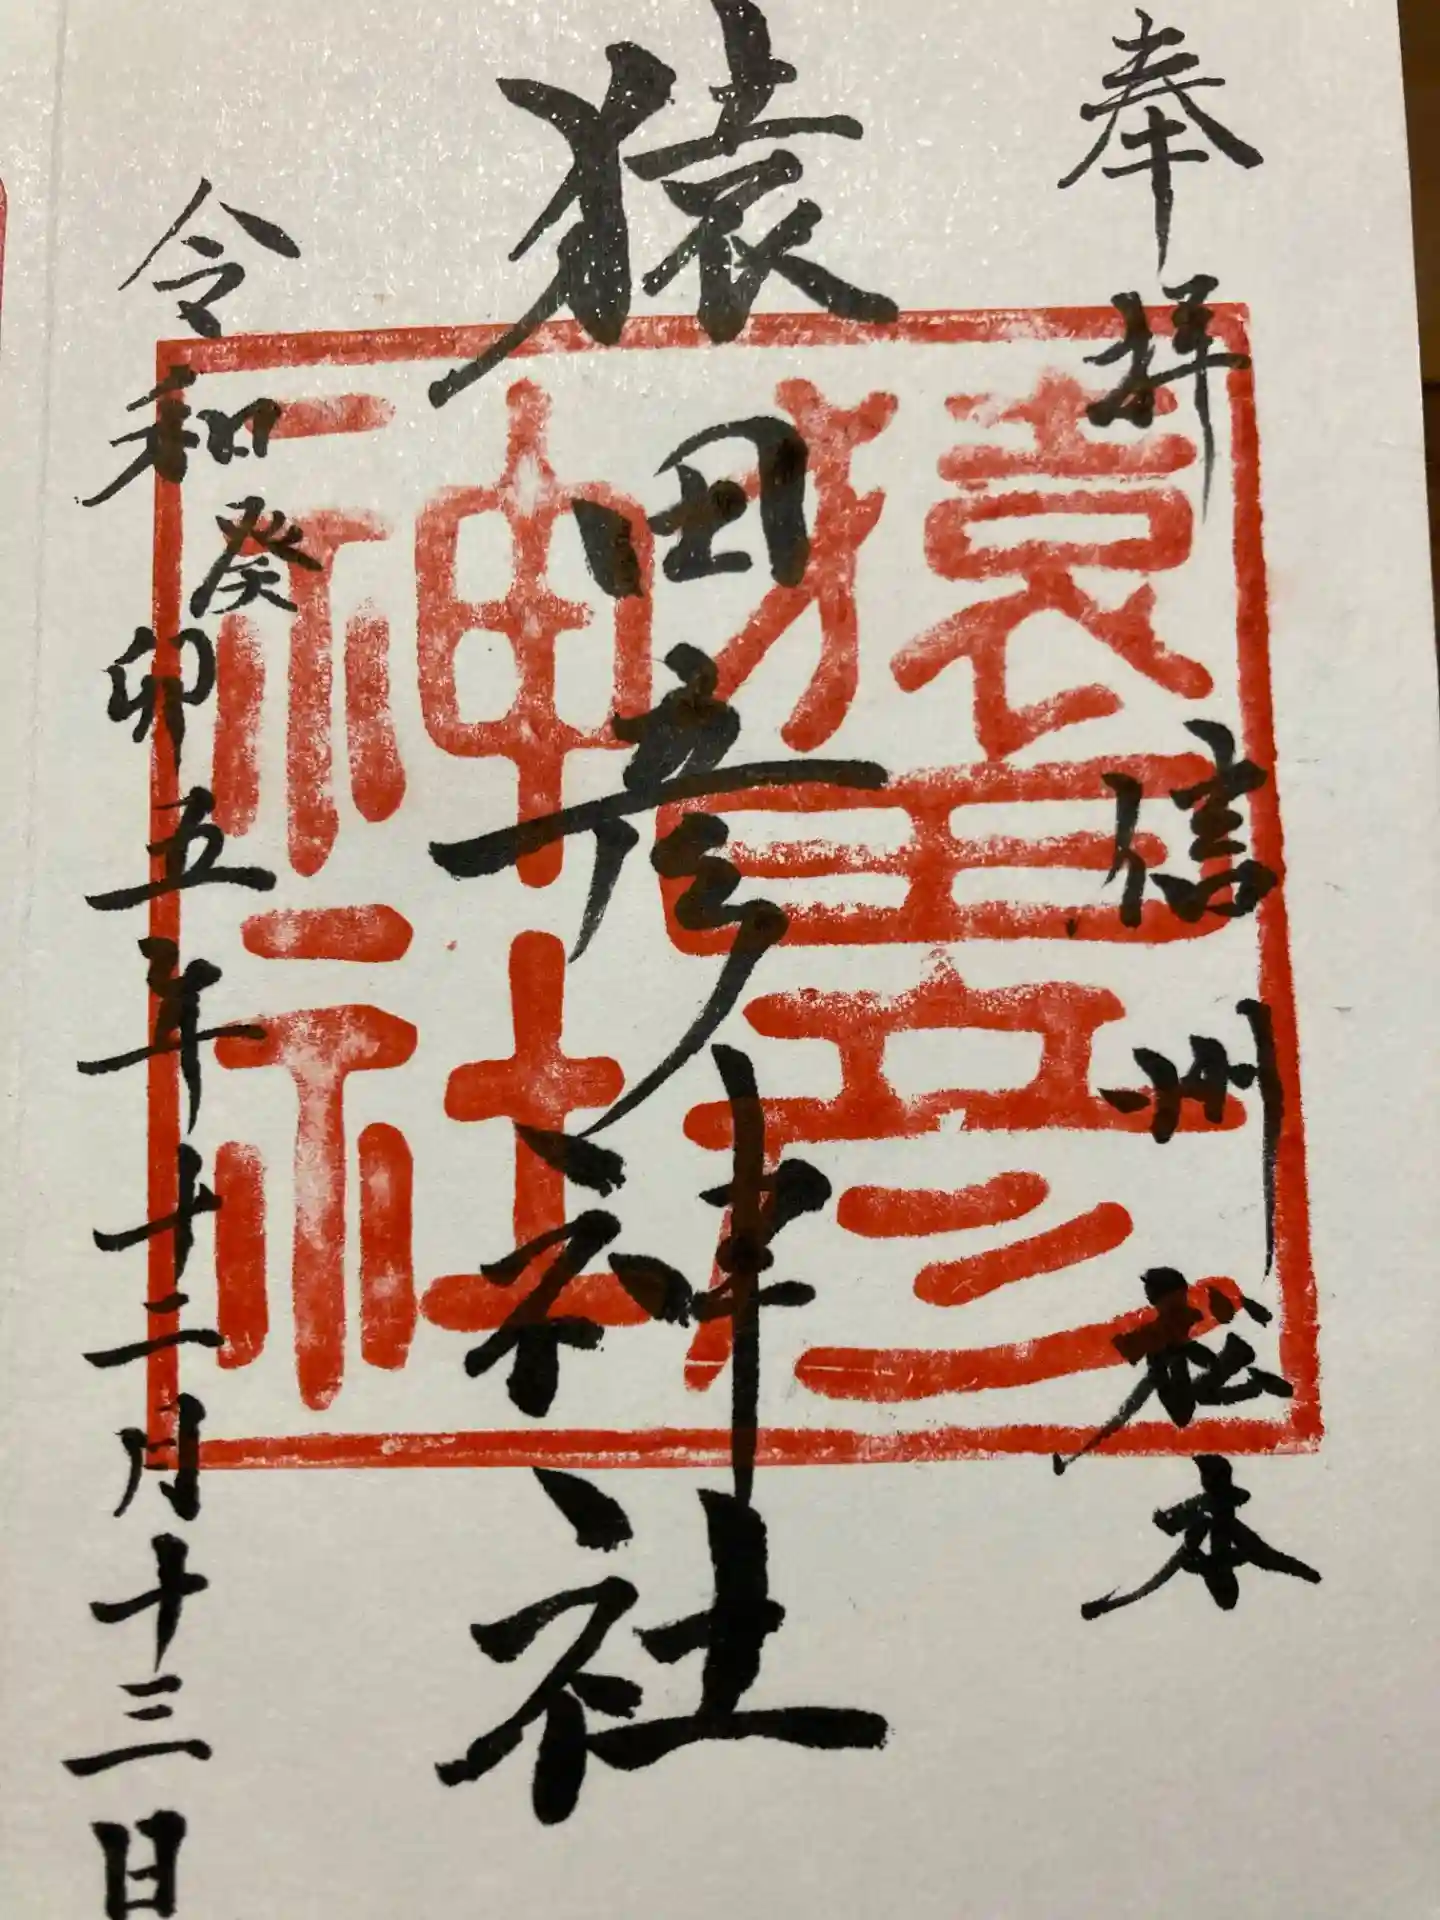 奉拝
信州松本
猿田彦神社
猿田彦
神社
令和癸卯五年十二月十三日